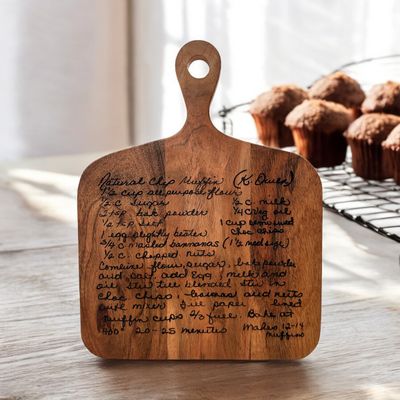 Natural Chip Muffin (K Davies)
1 ½ cup all purpose flour
½ c. sugar ½ c. milk
2 tsp bak powder ¼ c veg oil
½ tsp salt 1 cup
1 egg slightly beaten choc chips
3/4 c mashed bannanas (1 ½ med size)
½ c. chopped nuts
Combine flour, sugar, bak powder
and salt, add egg, milk and
oil stir till blended stir in
choc chips, bananas and nuts
mixer fill paper lined
muffin cups 2/3 full. Bake at
400° 20-25 minutes Makes 12-14
muffins